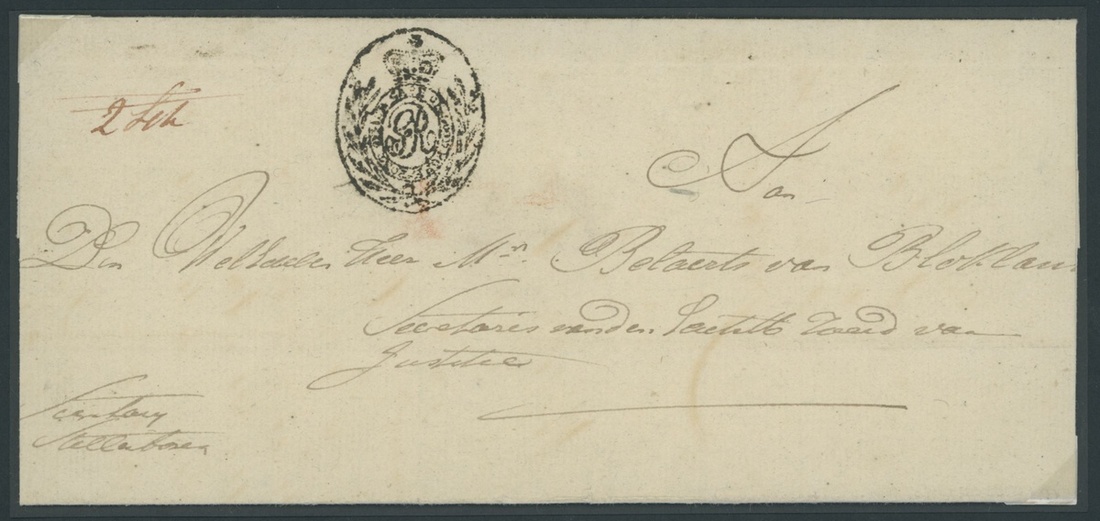 2 Sch
GR
Aan
Den Weledelen Heer Mr. Belaerts van Blokland
Secretaris van den Raad van
Justitie
Secretary
Stellenbosch